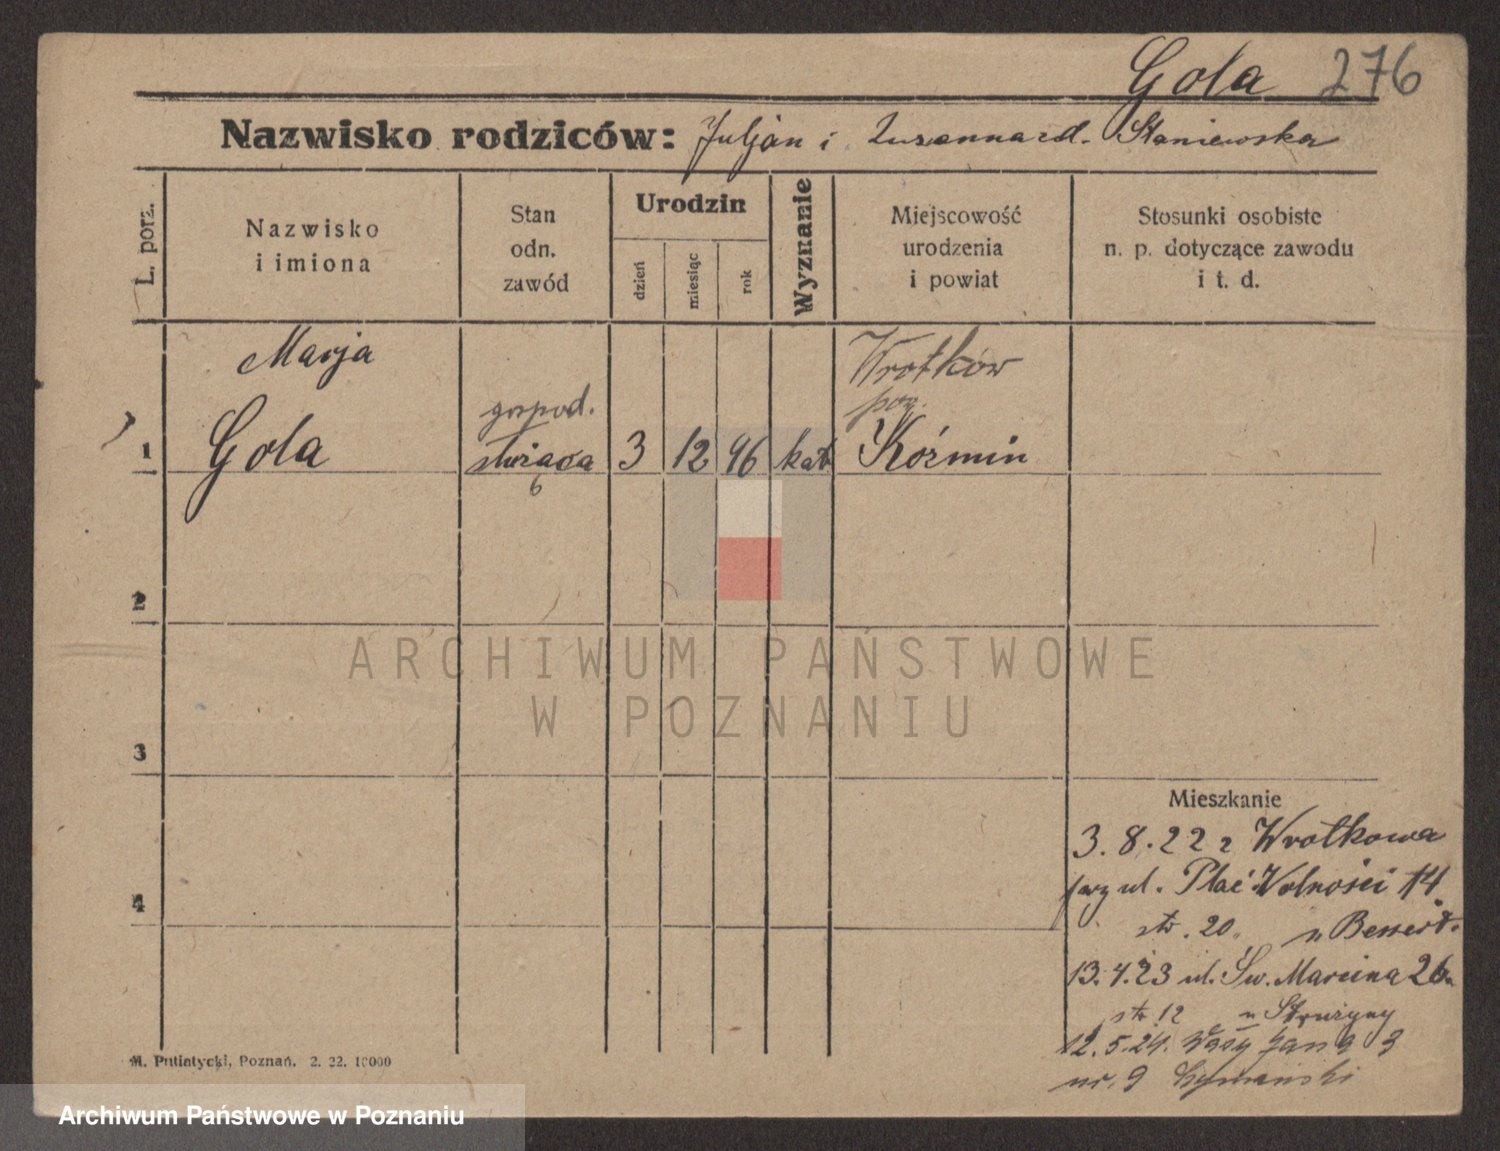 Gola 276
Nazwisko rodziców: Juljan i Zuzanna zd. Staniewska
L. porz.
Nazwisko
i imiona
Stan
odn.
zawód
Urodzin
dzień
miesiąc
rok
Wyznanie
Miejscowość
urodzenia
i powiat
Stosunki osobiste
n. p. dotyczące zawodu
i t. d.
Marja
Gola
gospod.
służąca
6
1
3 12 96 kat
Wrotków
pow.
Koźmin
2
3
4
Mieszkanie
3.8.22 z Wrotkowa
ul. Plac Wolności 14
str. 20. u Bessert.
13.4.23 ul. Św. Marcina 26
str 12 u
12.5.24. Wały Jana 3
nr. 9
M. Putiatycki, Poznań. 2. 22. 10000
ARCHIWUM PAŃSTWOWE
W POZNANIU
Archiwum Państwowe w Poznaniu